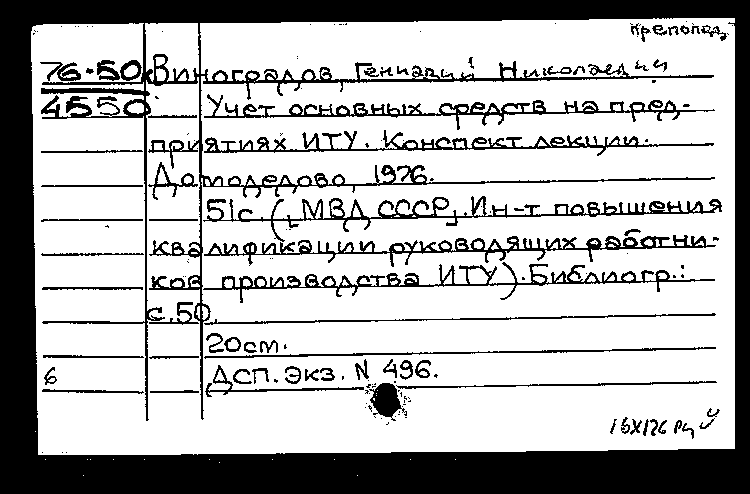 препод,
76-50 Виноградов, Геннадий Николаевич
4550 Учет основных средств на пред-
приятиях ИТУ. Конспект лекции.
Домодедово, 1976.
51с. ([МВД СССР]. Ин-т повышения
квалификации руководящих работни-
ков производства ИТУ). Библиогр.:
с.50.
20см.
6 ДСП. Экз. N 496.